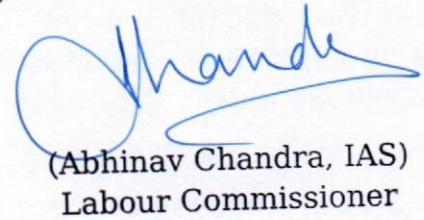 Chandra
(Abhinav Chandra, IAS)
Labour Commissioner